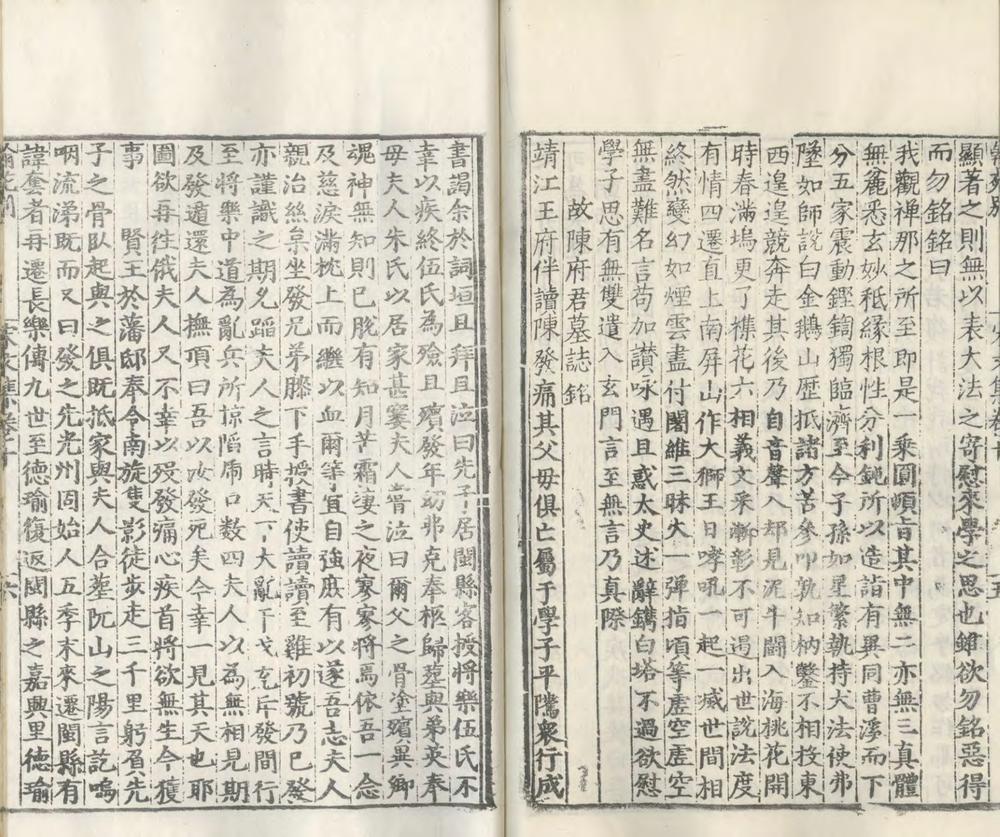 顯著之則無以表大法之寄慰來學之思也雖欲勿銘惡得
而勿銘銘曰
我觀禪那之所至即是一乘圓頓旨其中無二亦無三真體
無麄悉玄妙秪緣根性分利鈍所以造詣有異同曹溪而下
分五家震動鏗鍧獨臨濟至今子孫如星繁執持大法使弗
墜如師說白金鵝山歷抵諸方苦參叩孰知枘鑿不相投東
西遑遑競奔走其後乃自音聲入却見泥牛鬪入海桃花開
時春滿塢更了樵花六相義文采漸彰不可遏出世說法度
有情四遷直上南屏山作大獅王日哮吼一起一滅世間相
終然變幻如煙雲盡付闍維三昧火一彈指頃等虛空虛空
無盡難名言苟加讚咏遇且惑太史述辭鐫白塔不過欲慰
學子思有無雙遣入玄門言至無言乃真際
故陳府君墓誌銘
靖江王府伴讀陳發痛其父毋俱亡屬于學子平陽衆行成
書謁余於詞垣且拜且泣曰先子居閩縣客授將樂伍氏不
幸以疾終伍氏為殮且殯發年幼弗克奉柩歸塟與弟英奉
毋夫人朱氏以居家甚窶夫人甞泣曰爾父之骨塗殯異鄉
魂神無知則已脫有知月苦霜淒之夜寥寥將焉依吾一念
及慈淚滿枕上而繼以血爾等宜自強庶有以遂吾志夫人
親治絲枲坐發兄弟膝下手授書使讀讀至雞初號乃已發
亦謹識之期兌蹈夫人之言時天下大亂干戈充斥發間行
至將樂中道為亂兵所掠陷虎口数四夫人以為無相見期
及發遁還夫人撫頂曰吾以汝發死矣今幸一見其天也耶
圖欲再徃俄夫人又不幸以歿發痛心疾首將欲無生今獲
事 賢王於藩邸奉令南旋隻影徒步走三千里躬負先
子之骨臥起與之俱既抵家與夫人合塟阮山之陽言訖嗚
咽流涕既而又曰發之先光州固始人五季末來遷閩縣有
諱套者再遷長樂傳九世至德瑜復返閩縣之嘉興里德瑜